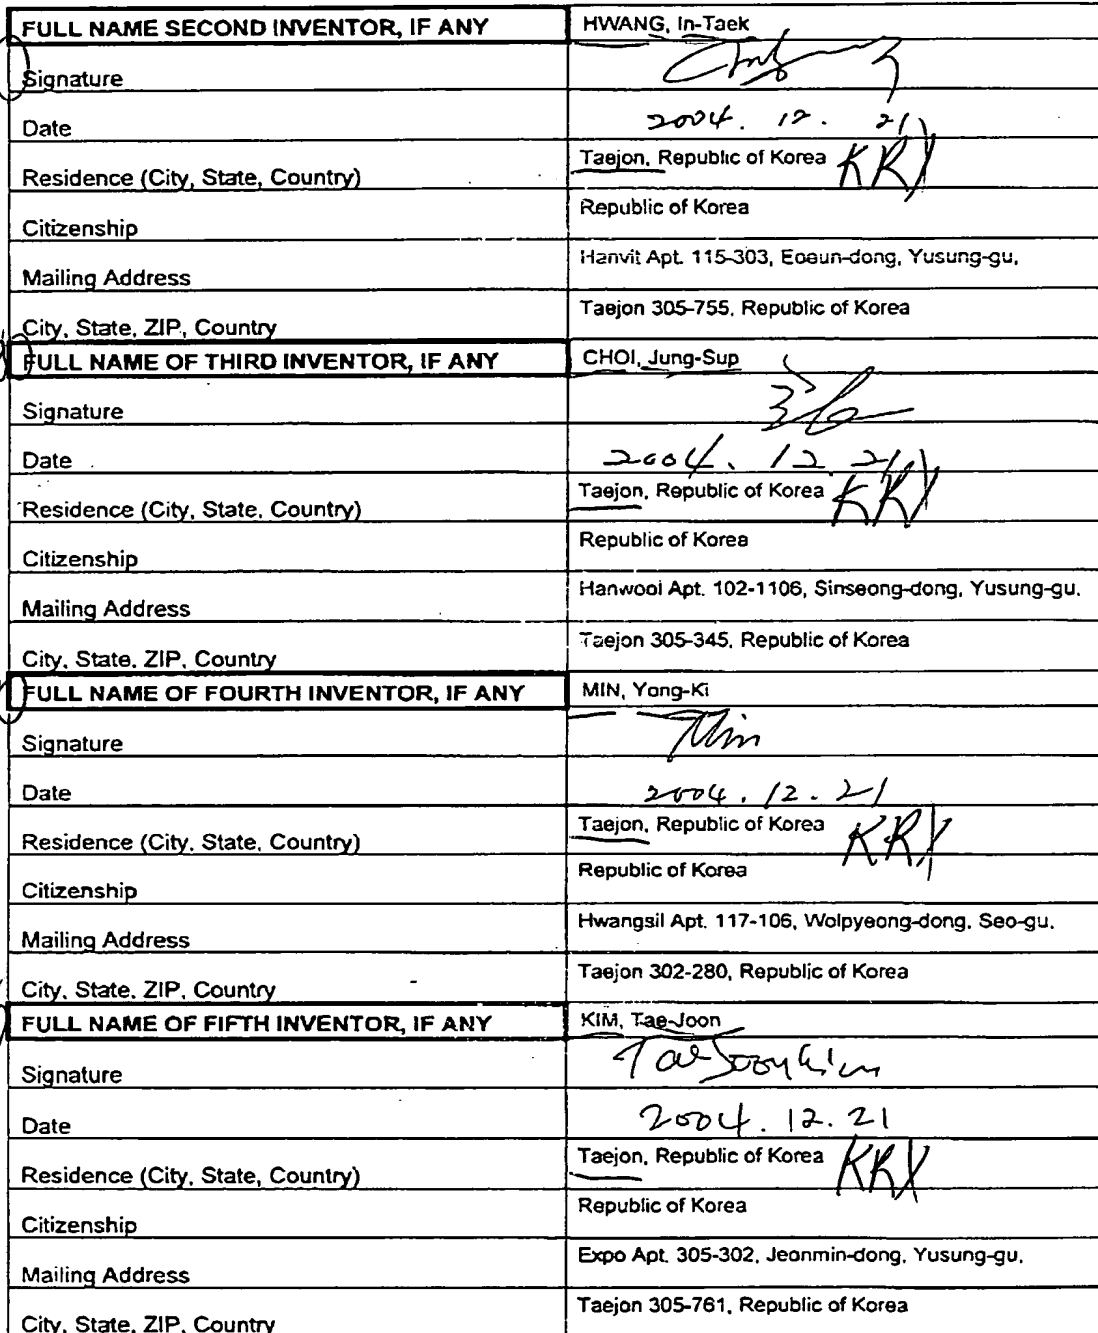 FULL NAME SECOND INVENTOR, IF ANY HWANG, In-Taek
Signature
Date 2004. 12. 21
Residence (City, State, Country) Taejon, Republic of Korea KRX
Citizenship Republic of Korea
Mailing Address Hanvit Apt. 115-303, Eoeun-dong, Yusung-gu,
City, State, ZIP, Country Taejon 305-755, Republic of Korea
FULL NAME OF THIRD INVENTOR, IF ANY CHOI, Jung-Sup
Signature
Date 2004. 12. 21
Residence (City, State, Country) Taejon, Republic of Korea KRX
Citizenship Republic of Korea
Mailing Address Hanwool Apt. 102-1106, Sinseong-dong, Yusung-gu,
City, State, ZIP, Country Taejon 305-345, Republic of Korea
FULL NAME OF FOURTH INVENTOR, IF ANY MIN, Yong-Ki
Signature Min
Date 2004. 12. 21
Residence (City, State, Country) Taejon, Republic of Korea KRX
Citizenship Republic of Korea
Mailing Address Hwangsil Apt. 117-106, Wolpyeong-dong, Seo-gu,
City, State, ZIP, Country Taejon 302-280, Republic of Korea
FULL NAME OF FIFTH INVENTOR, IF ANY KIM, Tae-Joon
Signature Tae Joon Kim
Date 2004. 12. 21
Residence (City, State, Country) Taejon, Republic of Korea KRX
Citizenship Republic of Korea
Mailing Address Expo Apt. 305-302, Jeonmin-dong, Yusung-gu,
City, State, ZIP, Country Taejon 305-761, Republic of Korea